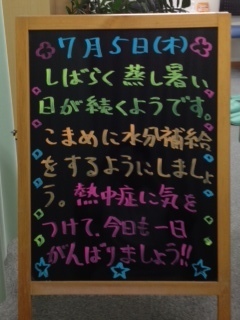 7月5日(木)
しばらく蒸し暑い
日が続くようです。
こまめに水分補給
をするようにしましょ
う。熱中症に気を
つけて、今日も一日
がんばりましょう!!